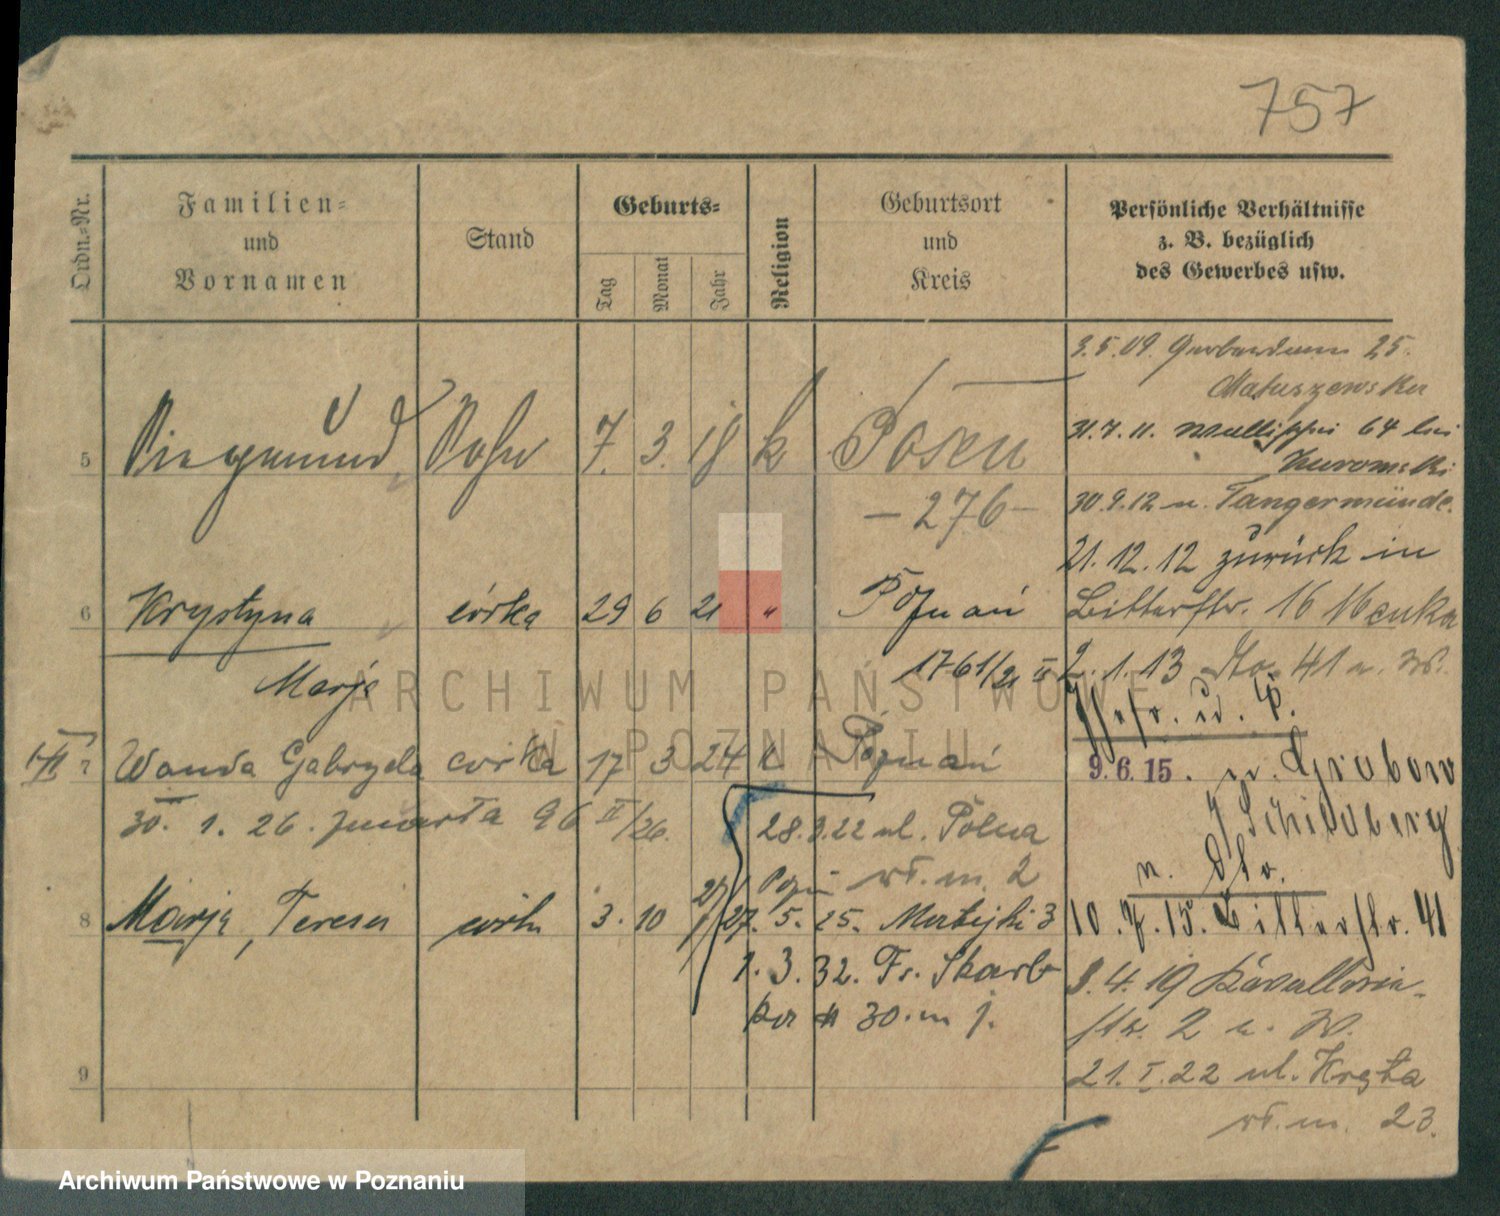 757
Ordn.-Nr.
Familien-
und
Vornamen
Stand
Geburts-
Tag
Monat
Jahr
Religion
Geburtsort
und
Kreis
Persönliche Verhältnisse
z. B. bezüglich
des Gewerbes usw.
5 Siegmund Sohn 7. 3. 18 k Posen
- 276 -
6 Krystyna córka 29 6 21 " Poznań
Marja
1761/21 II
7 Wanda Gabryela córka 17 3 24 k Poznań
30. 1. 26. zmarła 96 II/26.
8 Marja, Teresa córka 3. 10 27
9
28.3.22 ul. Polna
m. 2
27. 5. 25. Matejki 3
1. 3. 32. Fr. Skarb
30. m j.
3.5.09. 25.
Matuszewska
31.7.11. Wallischei 64 bei
30.9.12 n. Tangermünde.
21.12.12 zurück in
Bitterstr. 16
2.1.13 41 n. W.
9.6.15. n. Grabow
Schildberg
n. Str.
10.7.15. Bitterstr. 41
3.4.19 Kavallerie-
str. 2 n. W.
21.I.22 ul. Kręta
m. 23.
ARCHIWUM PAŃSTWOWE
W POZNANIU
Archiwum Państwowe w Poznaniu